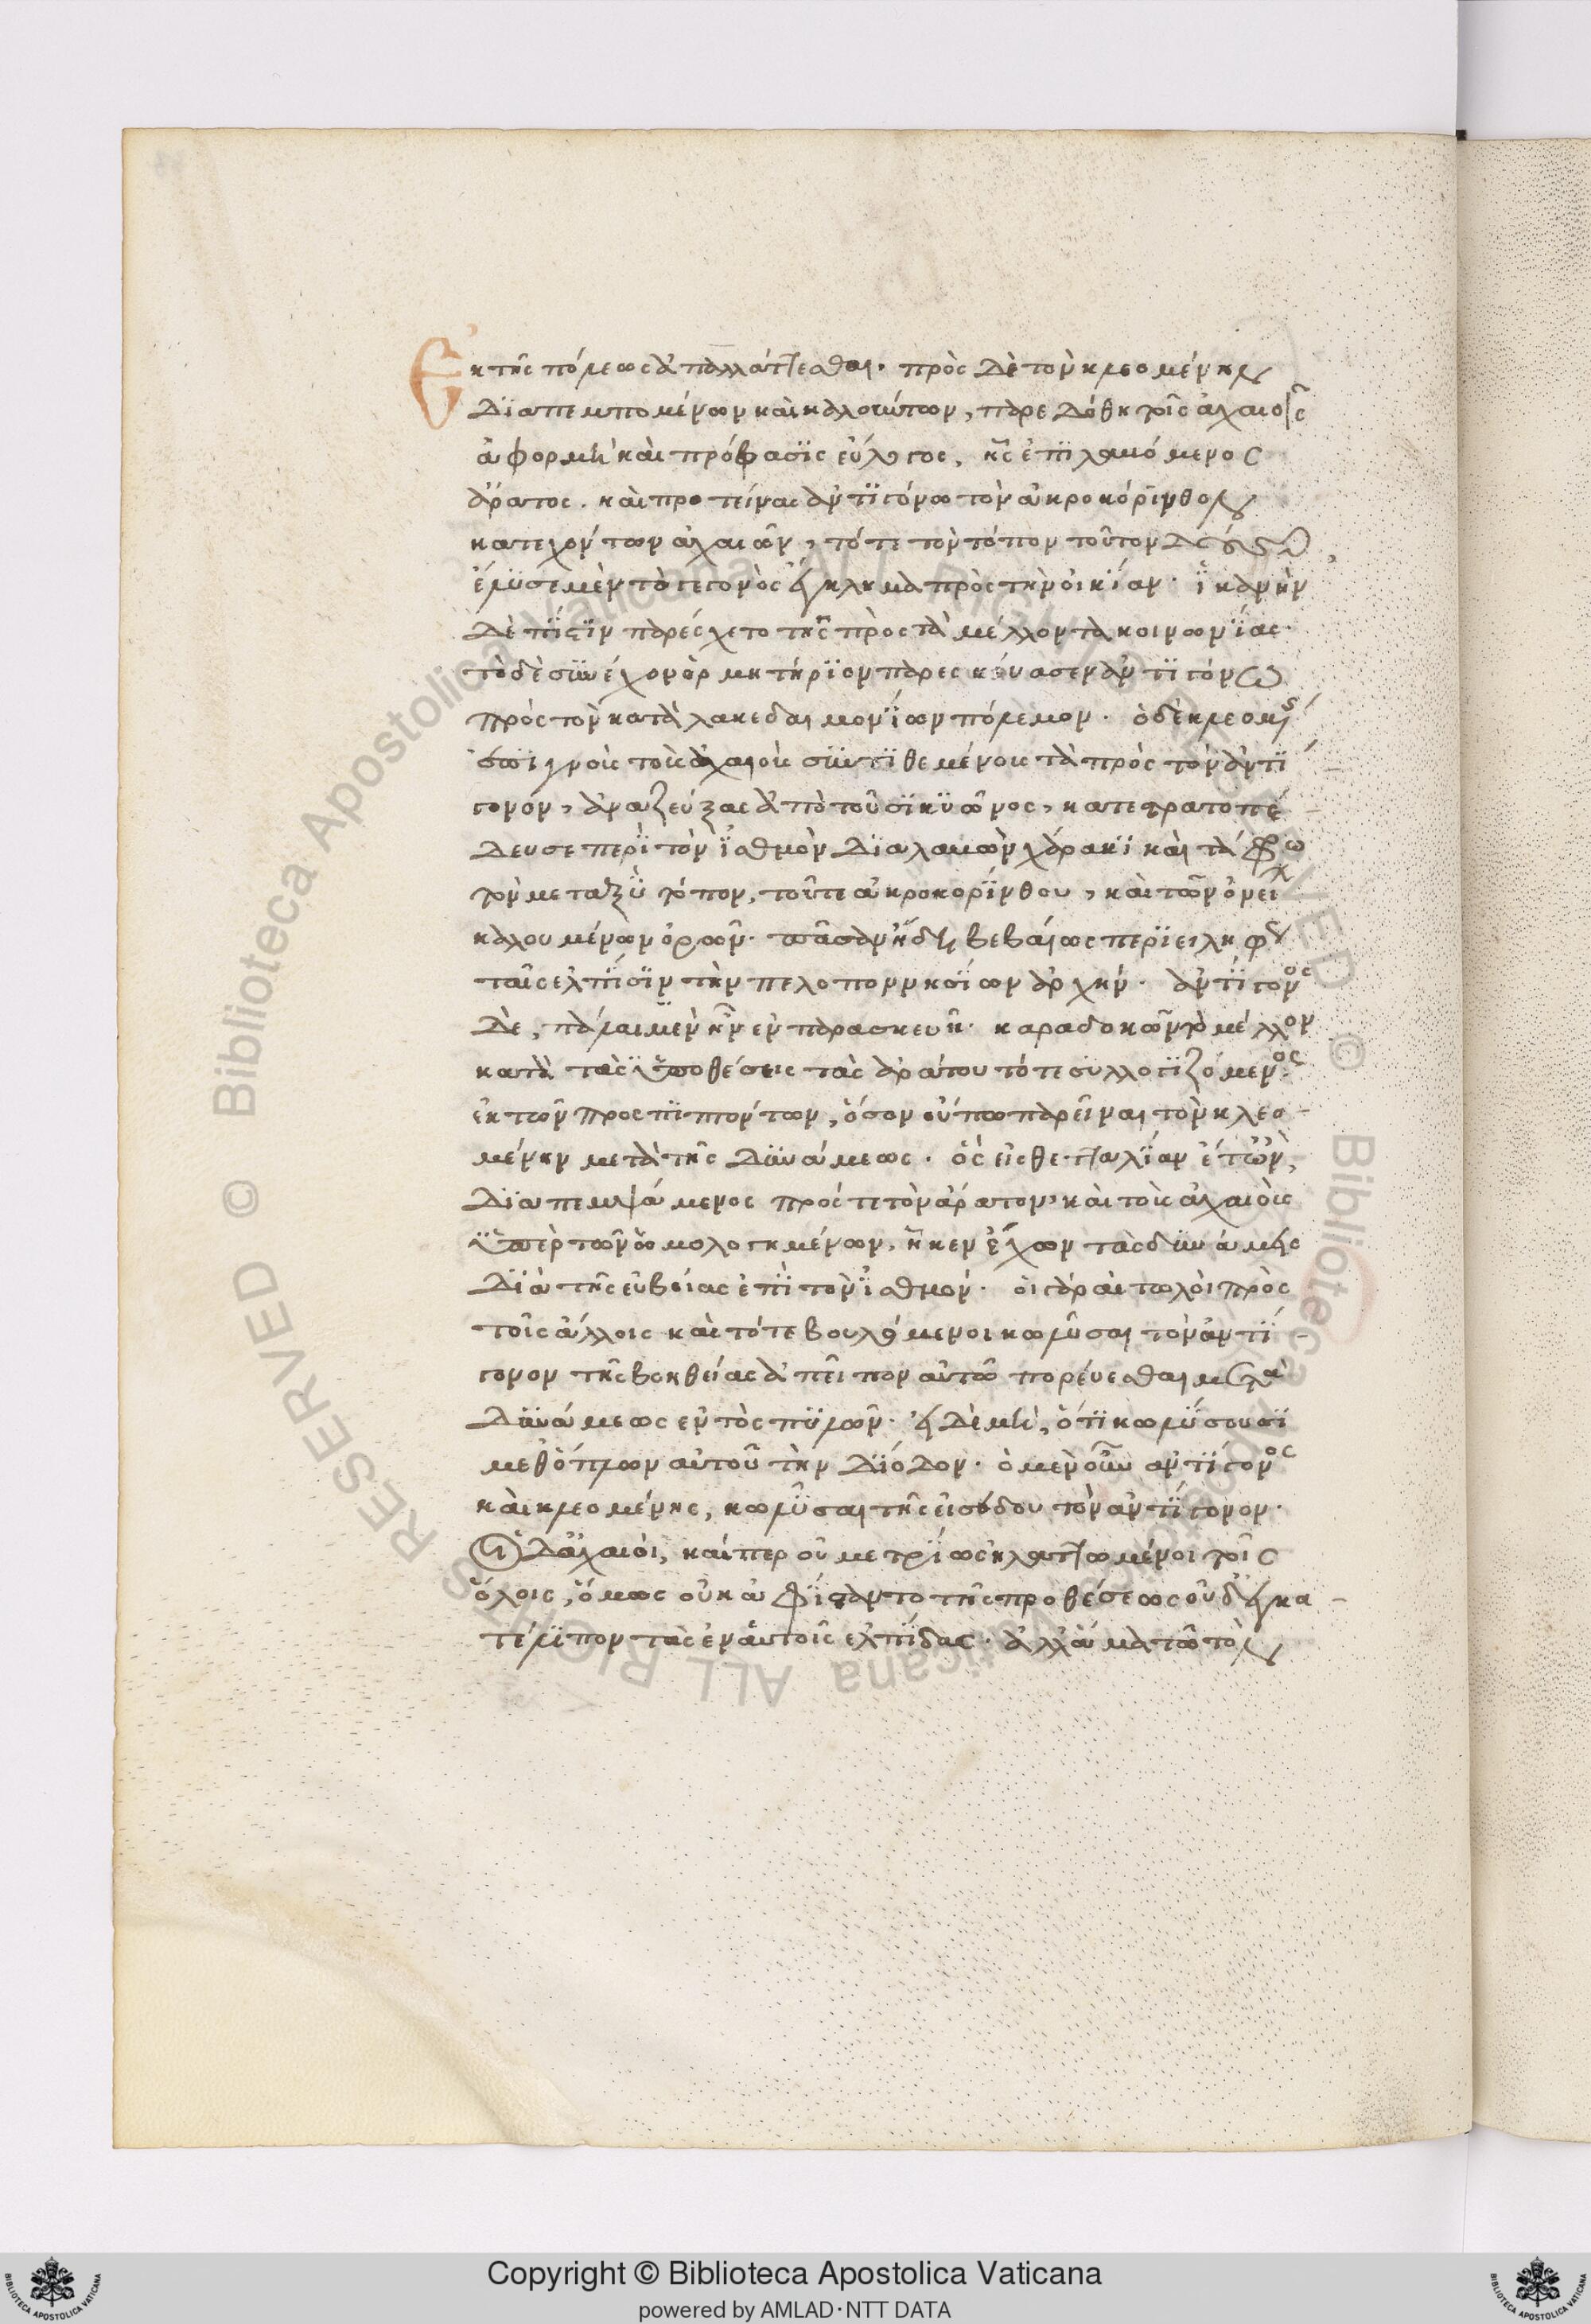 Ἐκ τῆς πόλεως ἀπαλλάττεσθαι· πρὸς δὲ τὸν κλεομένην
διαπεμπομένων καὶ καλούντων, παρεδόθη τοῖς ἀχαιοῖς
ἀφορμὴ καὶ πρόφασϊς εὔλογος, ἧς ἐπϊλαβόμενος
ἄρατος. καὶ προτείνας ἀντϊγόνω τὸν ἀκροκόρϊνθον
κατεχόντων ἀχαιῶν, τότε τὸν τόπον τοῦτον
ἔλϋσε μὲν τὸ γεγονὸς ἔγκλημα πρὸς τὴν οἰκΐαν· ἱκανὴν
δὲ πΐστϊν παρέσχετο τῆς πρὸς τὰ μέλλοντα κοινωνΐας·
τὸ δὲ συνέχον ὁρμητήρϊον παρεσκεύασεν ἀντϊγόνω
πρὸς τὸν κατὰ λακεδαιμονΐων πόλεμον· ὁ δὲ κλεομ
τοὺς ἀχαιοὺς συντϊθεμένους τὰ πρὸς τὸν ἀντϊ
γονόν, ἀναζεύξας ἀπὸ τοῦ σϊκϋῶνος, κατεστρατοπέ
δευσε περὶ τὸν ἰσθμὸν διαλαβὼν χάρακϊ καὶ τάφρω
τὸν μεταξὺ τόπον, τοῦ τε ἀκροκορΐνθου, καὶ τῶν ὀνει
καλουμένων ὀρῶν· πᾶσαν ἤδη βεβαίως περϊειληφὼς
ταῖς ἐλπΐσϊν τὴν πελοποννησΐων ἀρχήν· ἀντΐγονος
δὲ, πάλαι μὲν ἦν ἐν παρασκευῆ· καραδοκῶν τὸ μέλλον
κατὰ τὰς ὑποθέσεις τὰς ἀράτου τότε συλλογϊζόμενος
ἐκ τῶν προσπϊπτόντων, ὅσον οὔπω παρεῖναι τὸν κλεο-
μένην μετὰ τῆς δυνάμεως· ὃς εἰς θετταλΐαν ἔτων,
διαπεμψάμενος πρός τε τὸν ἄρατον καὶ τοὺς ἀχαιοὺς
ὑπὲρ τῶν ὡμολογημένων, ἧκεν ἔχων τὰς δυνάμεις
διὰ τῆς εὐβοίας ἐπὶ τὸν ἰσθμόν· οἱ γὰρ αἰτωλοὶ πρὸς
τοῖς ἄλλοις καὶ τότε βουλόμενοι κωλῦσαι τὸν ἀντΐ-
γονον τῆς βοηθείας ἀπεῖπον αὐτῶ πορεύεσθαι μετὰ
δυνάμεως ἐντὸς πϋλῶν· εἰ δὲ μὴ, ὅτϊ κωλύσουσϊ
μεθ' ὅπλων αὐτοῦ τὴν δΐοδον· ὁ μὲν οὖν ἀντΐγονος
καὶ κλεομένης, κωλῦσαι τῆς εἰσόδου τὸν ἀντΐγονον·
Οἱ δ' ἀχαιοὶ, καίπερ οὐ μετρΐως ἠλαττωμένοι τοῖς
ὅλοις, ὅμως οὐκ ἀφΐσταντο τῆς προθέσεως οὐδ' ἐγκα-
τέλϊπον τὰς ἐν αὑτοῖς ἐλπΐδας· ἀλλ' ἅμα τῶ τὸν